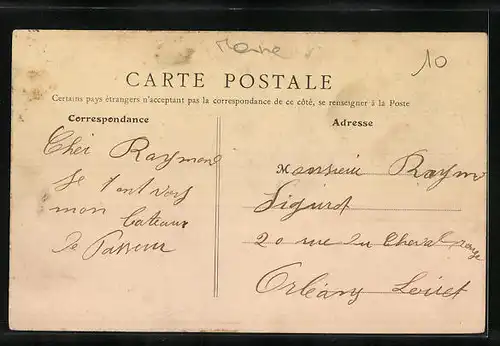 Marne
10
CARTE POSTALE
Certains pays étrangers n'acceptant pas la correspondance de ce côté, se renseigner à la Poste
Correspondance
Adresse
Cher Raymond
Je t'envois
mon bateau
de Passeur
Monsieur Raym
Sigurot
20 rue du Cheval rouge
Orléans Loiret